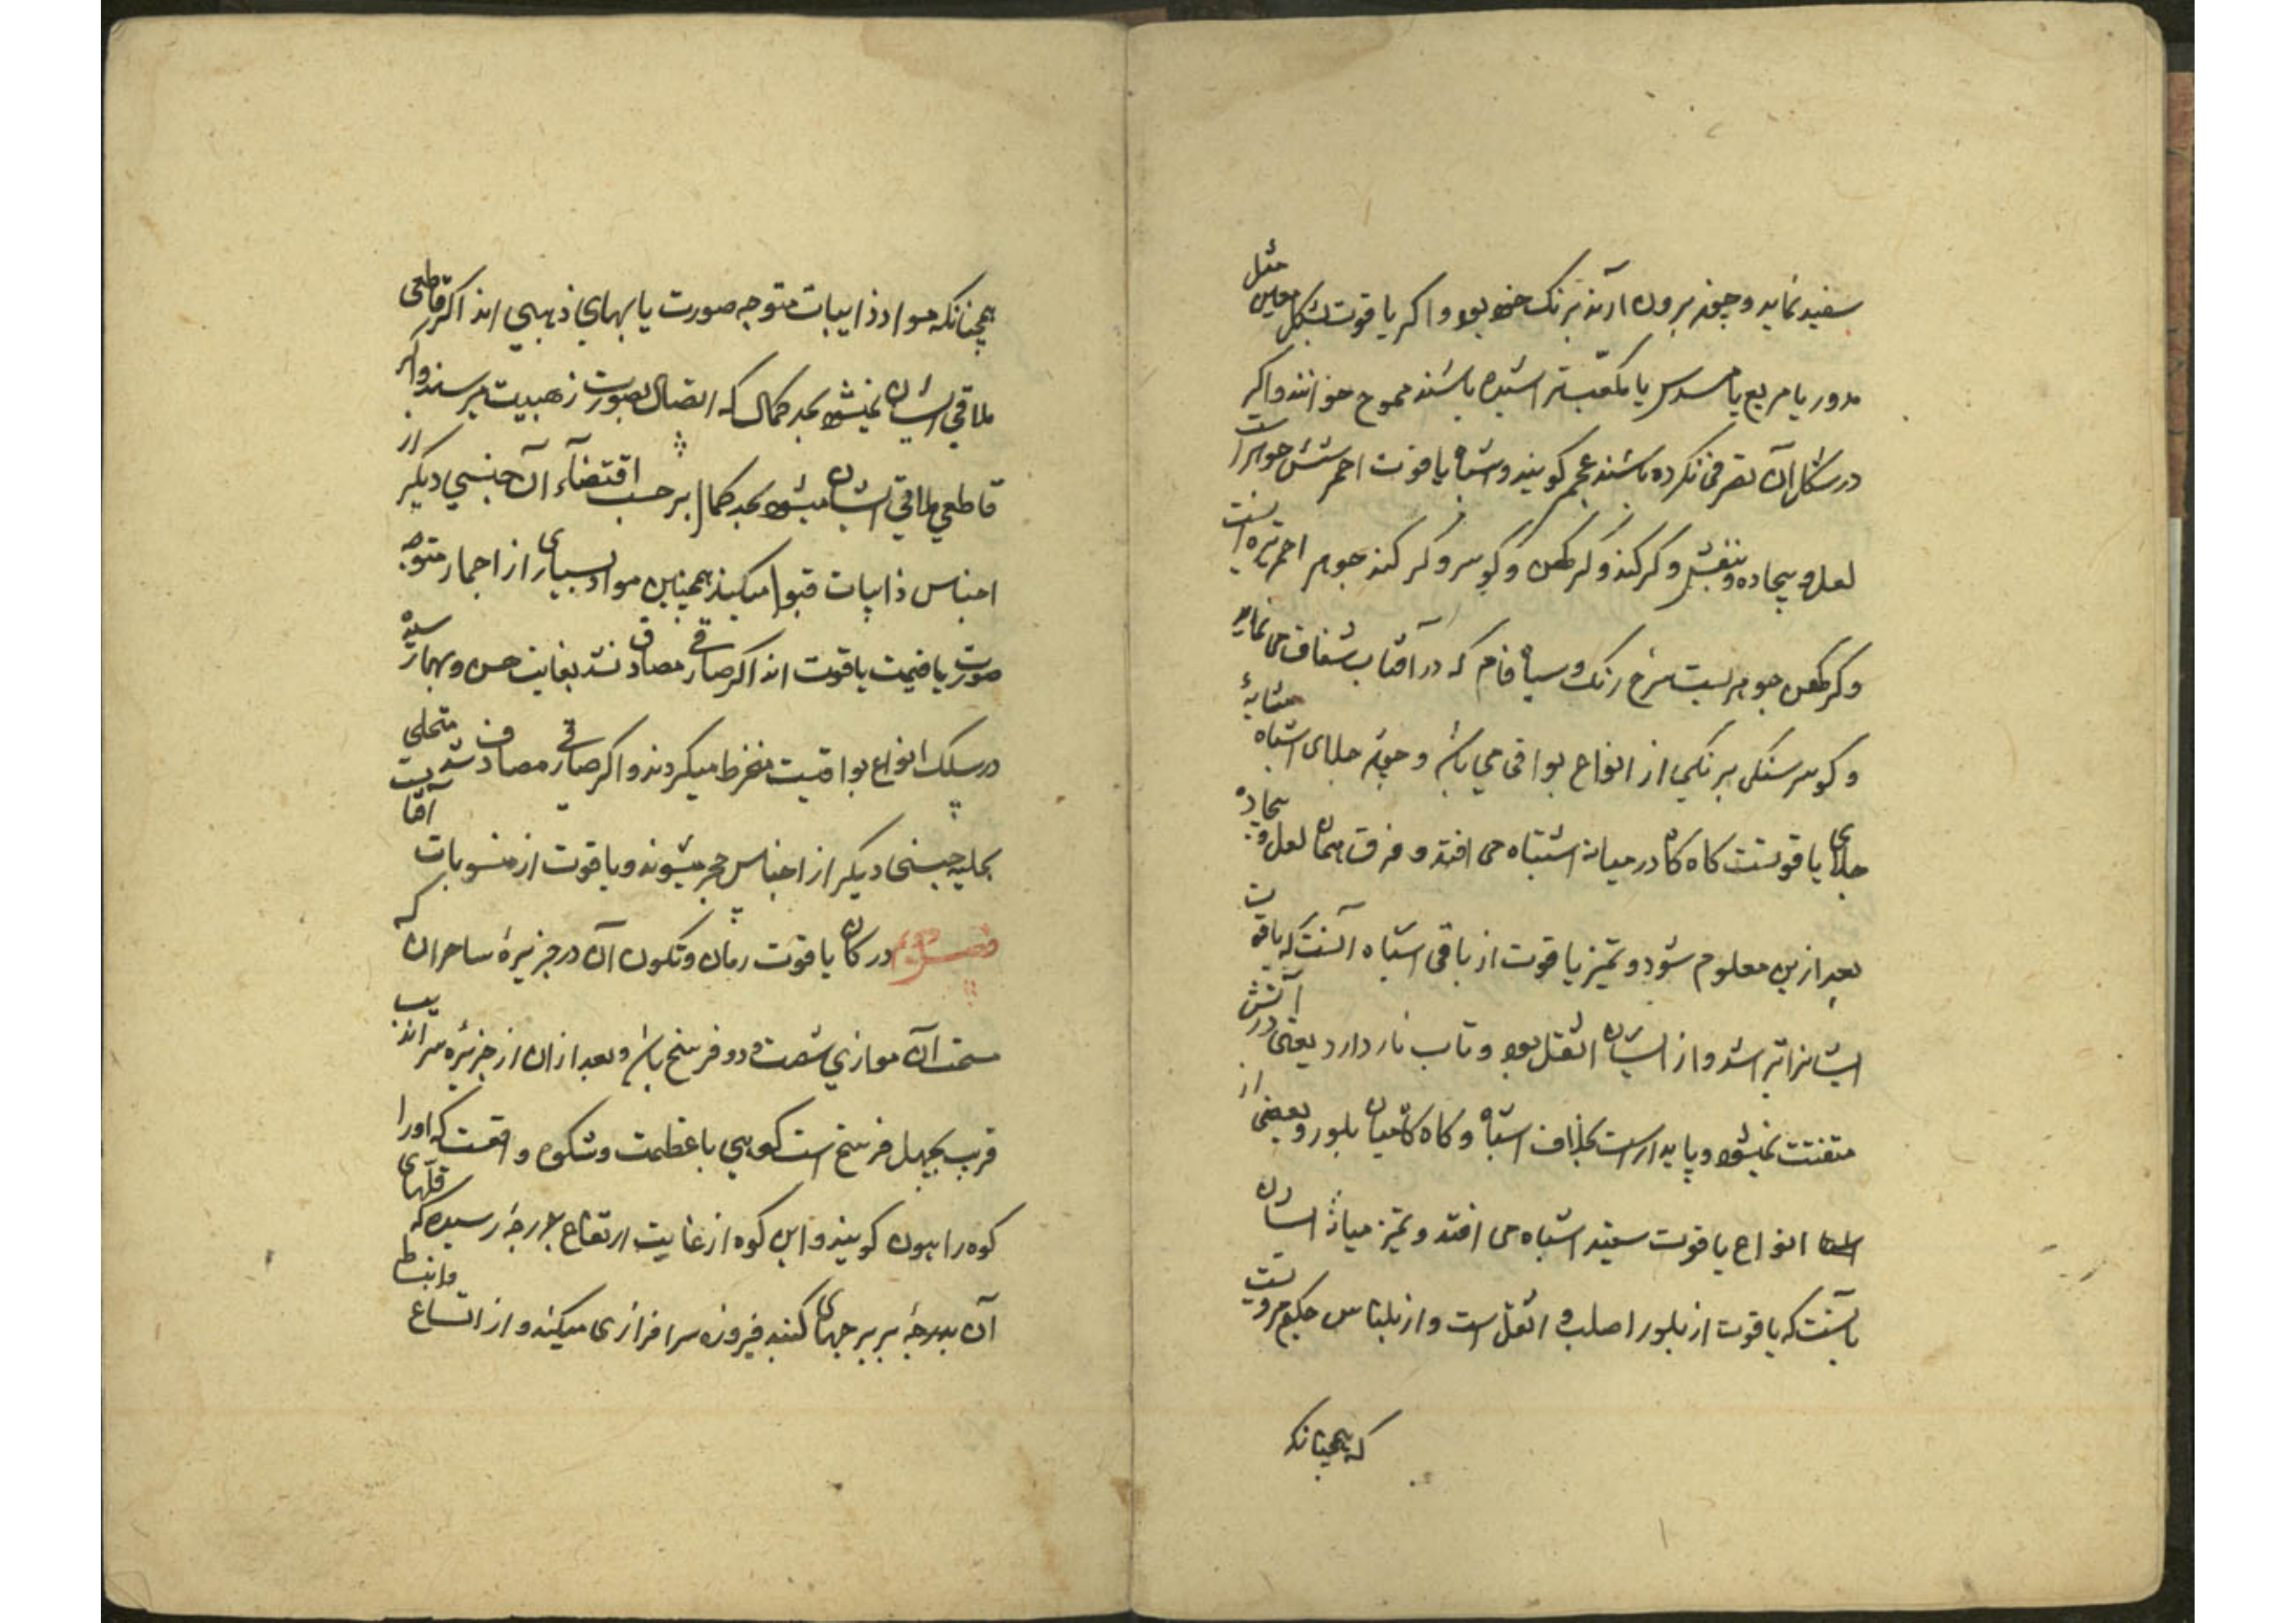 سفید نماید و چون برون آرند برنک خود بود و اکر یاقوت بشکل معین مثل
مدور یا مربع یا مسدس یا مکعب تراشیده باشند ممسوح خوانند و اکر
در شکل آن تصرفی نکرده باشند عجم کویند و اشباه یاقوت احمر شش جواهر است
لعل و بیجاده و بنفش و کرکند و کرکهن و کوسر و کرکند جوهر احمر تیره است
و کرکهن جوهریست سرخ رنک و سیاه فام که در آفتاب شفاف می نماید
و کوسر سنکی برنکی از انواع یواقی می باشد و چون جلای اشباه مشابهٔ
جلای یاقوتست کاه کاه در میانه اشتباه می افتد و فرق همان لعل و بیجاده
بعد ازین معلوم شود و تمیز یاقوت از باقی اشباه آنست که یاقوت
ایشانرا تراشد و از ایشان اثقل بود و تاب نار دارد یعنی در آتش
متفتت نمیشود و پایدارست بخلاف اشباه و کاه کاه میان بلور و بعضی از
انواع یاقوت سفید اشتباه می افتد و تمیز میانهٔ ایشان
بآنست که یاقوت از بلور اصلب و اثقل است و از بلیناس حکیم مرویست
که همچنانکه
همچنانکه مواد ذایبات متوجه صورت یا بهای ذهبی اند اکر قاطعی
ملاقی ایشان نمیشود بحد کمال که اتصال بصورت ذهبیت میرسند و اکر
قاطعی ملاقی ایشان میشود بحد کمال بر حسب اقتضاء آن جنسی دیکر از
اجناس ذایبات قبول میکنند همچنین مواد بسیاری از احجار متوجه
صورت یا قیمت یاقوت اند اکر صارفی مصادف نشد بغایت حسن و بها رسیده
در سلک انواع یواقیت منخرط میکردند و اکر صارفی مصادف شد متحلی
بحلیه جنسی دیکر از اجناس حجر میشوند و یاقوت از منسوبات آفتابست
فصل دوم در کان یاقوت رمان و تکون آن در جزیرهٔ ساحران که
سمت آن موازی شصت و دو فرسخ باشد و بعد از آن از جزیرهٔ سراندیب
قرب بچهل فرسخ است کوهی با عظمت و شکوه واقعست که اورا
کوه راهون کویند و این کوه از غایت ارتفاع بدرجهٔ رسیده که قلّهای
آن بدرجهٔ بر برجهای کنبد فیروزه سرافرازی میکند و از اتساع و انبساط